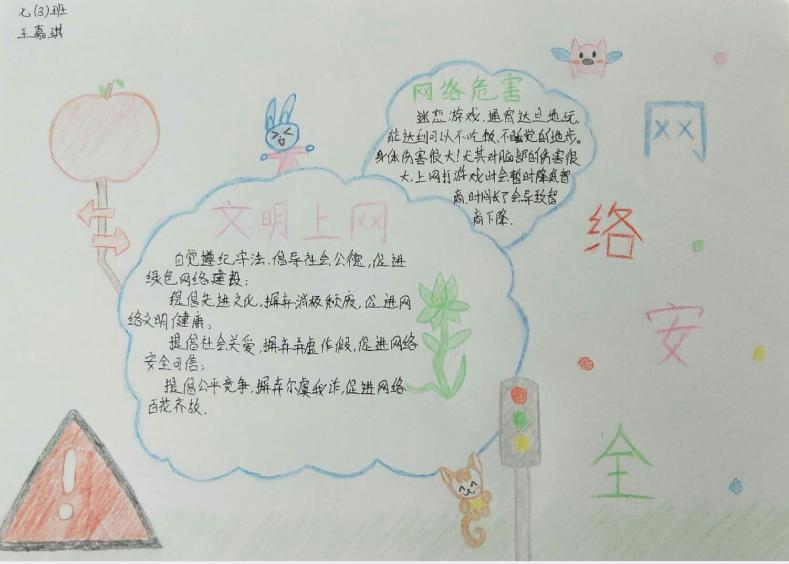 七(3)班
王嘉琪
网络危害
迷恋游戏,通宵达旦地玩,
能达到可以不吃饭、不睡觉的地步。
身体伤害很大!尤其对脑部的伤害很
大,上网打游戏时会暂时降低智
商,时间长了会导致智
商下降.
文明上网
自觉遵纪守法,倡导社会公德,促进
绿色网络建设;
提倡先进文化,摒弃消极颓废,促进网
络文明健康;
提倡社会关爱,摒弃弄虚作假,促进网络
安全可信;
提倡公平竞争,摒弃尔虞我诈,促进网络
百花齐放.
网
络
安
全
!